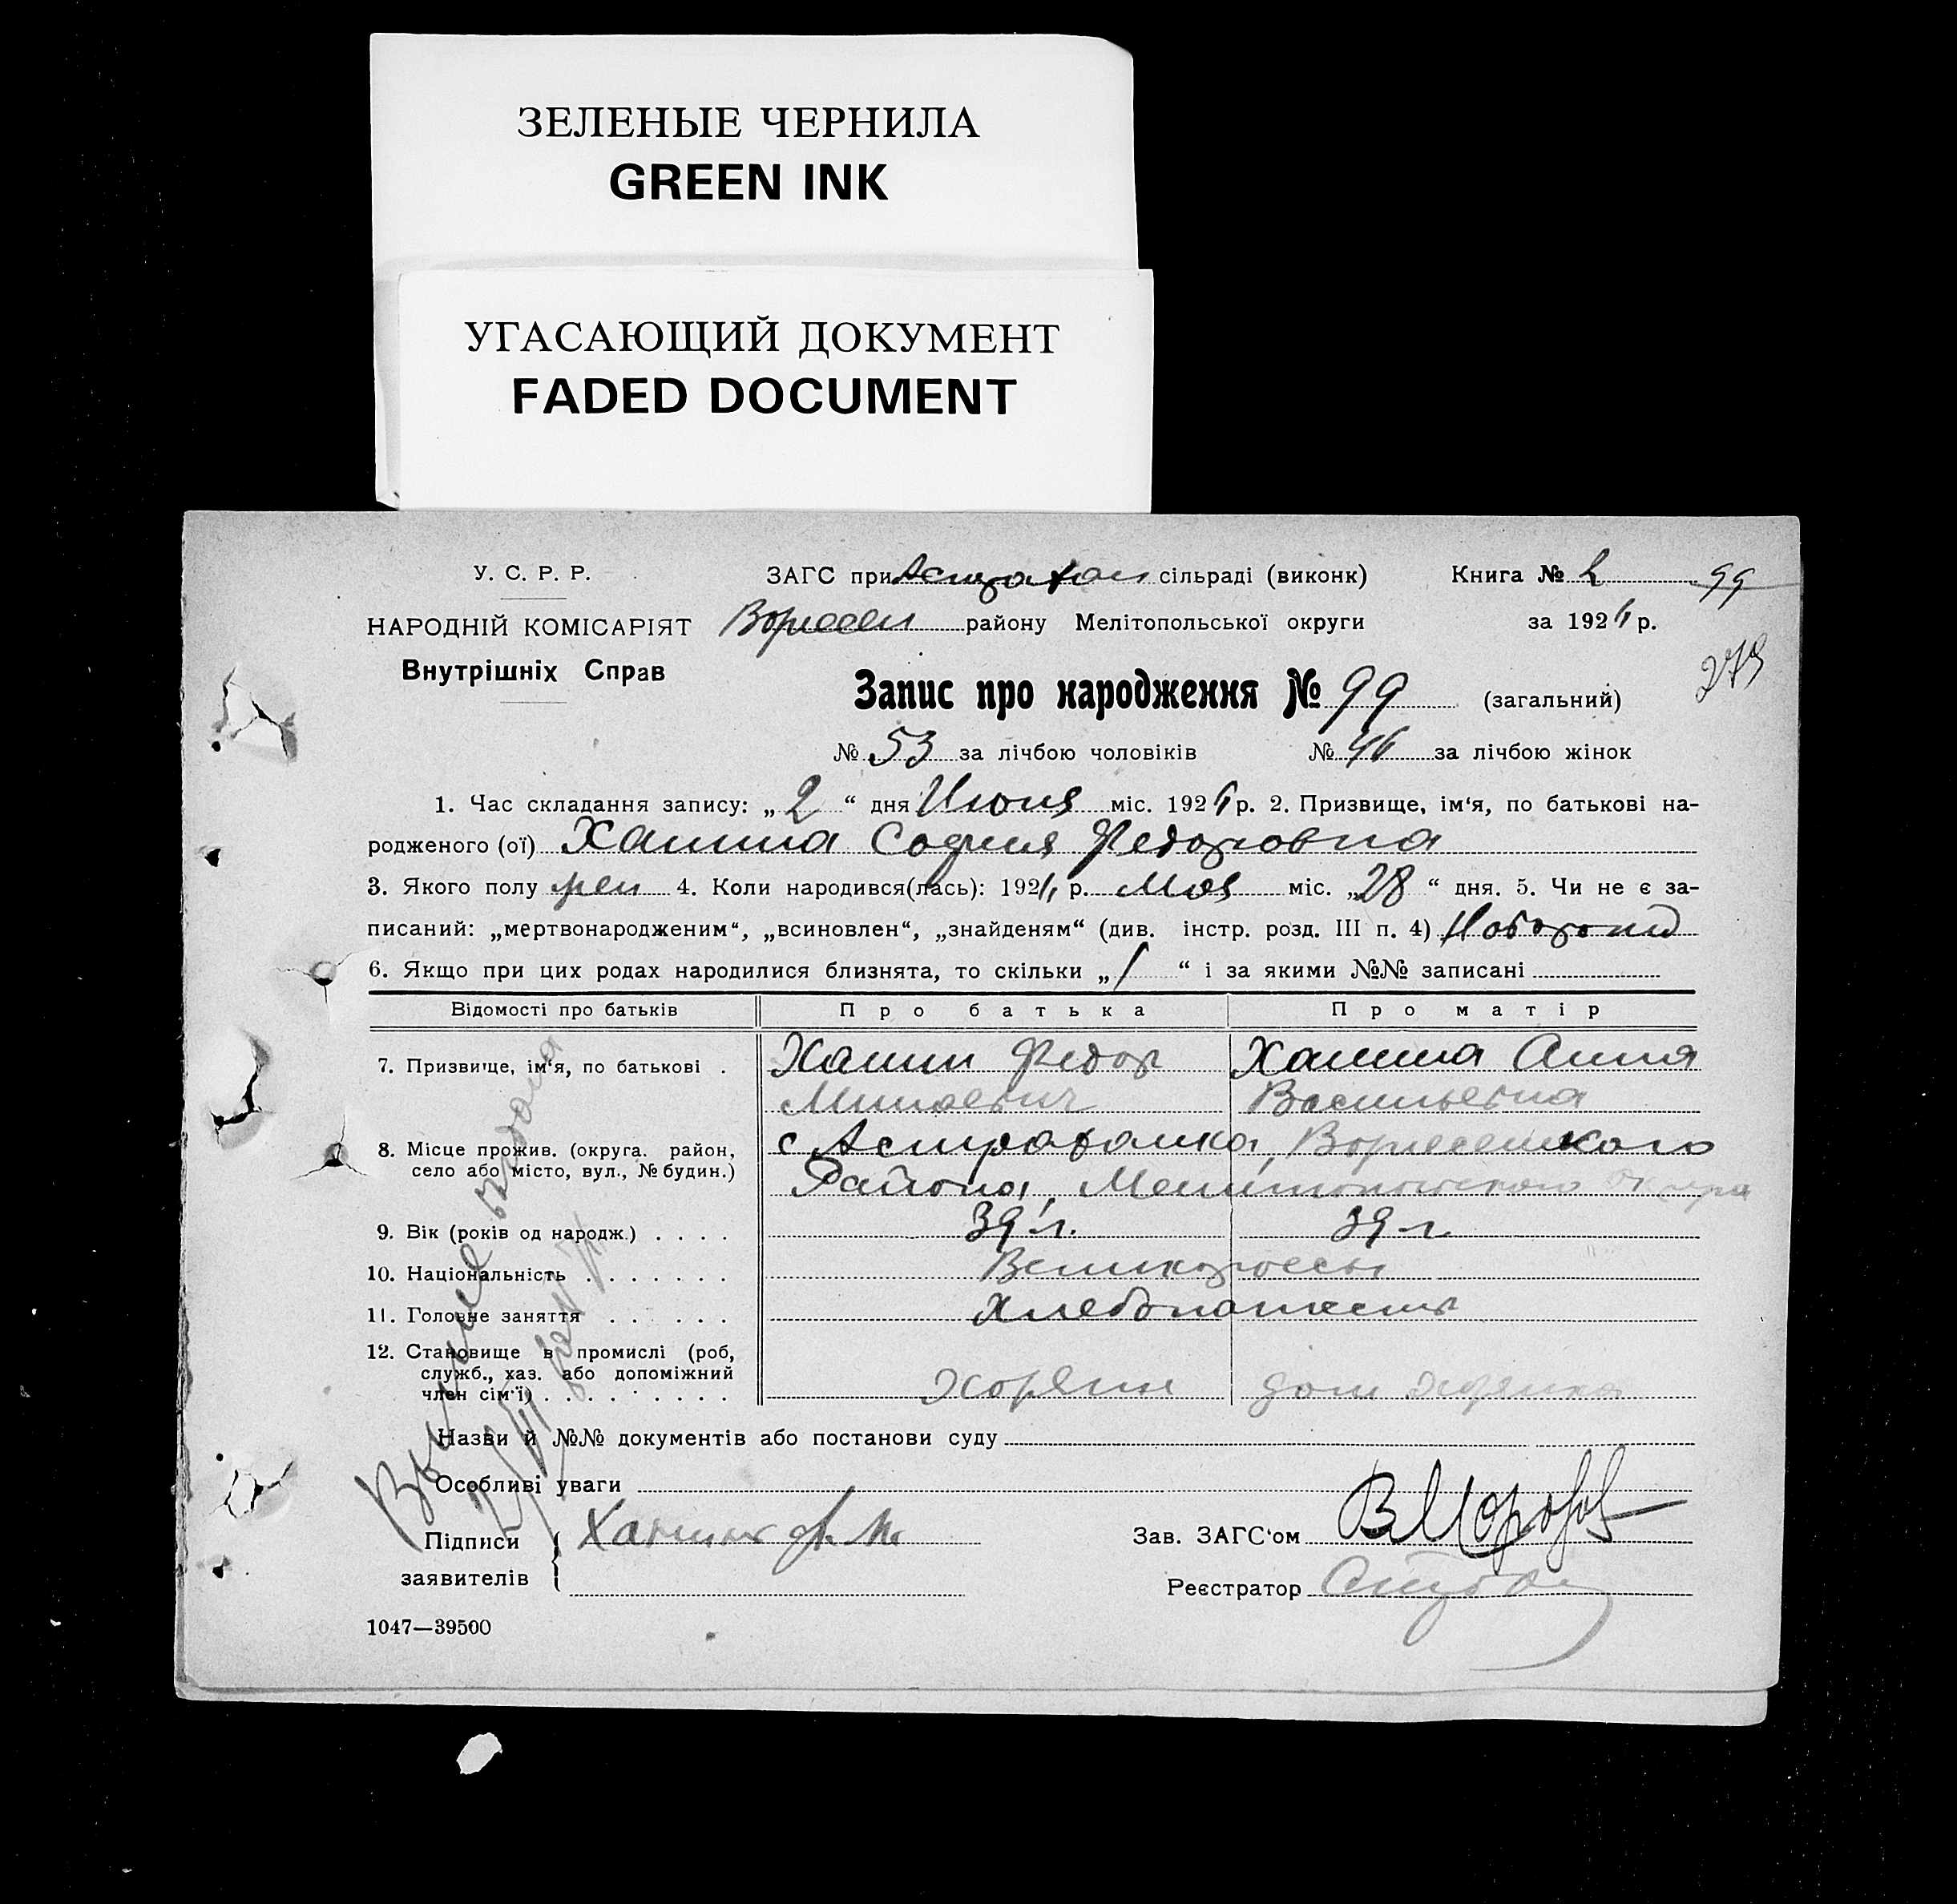 ЗЕЛЕНЫЕ ЧЕРНИЛА
GREEN INK
УГАСАЮЩИЙ ДОКУМЕНТ
FADED DOCUMENT
У. С. Р. Р. ЗАГС при Астрахан сільраді (виконк) Книга № 2 99
НАРОДНІЙ КОМІСАРІЯТ району Мелітопольської округи за 192 р.
Внутрішніх Справ
Запис про народження № 99 (загальний)
№ 53 за лічбою чоловіків № 46 за лічбою жінок
1. Час складання запису: „ 2 “ дня Июня міс. 192 р. 2. Призвище, ім‘я, по батькові на-
родженого (ої) Ханина София Федоровна
3. Якого полу жен 4. Коли народився(лась): 192 р. Мая міс. „28 “ дня. 5. Чи не є за-
писаний: „мертвонародженим“, „всиновлен“, „знайденям“ (див. інстр. розд. III п. 4)
6. Якщо при цих родах народилися близнята, то скільки „ 1 “ і за якими №№ записані
Відомості про батьків Про батька Про матір
7. Призвище, ім‘я, по батькові . Ханин Федор Ханина Анна
Минаевич Васильевна
8. Місце прожив. (округа. район, с Астраханка,
село або місто, вул., № будин.) Района, Мелитопольского округа
9. Вік (років од народж.) . . . . 39 л. 39 л
10. Національність . . . . . . . Великороссы
11. Головне заняття . . . . . . Хлебопашест
12. Становище в промислі (роб,
служб., хаз. або допоміжний
член сім‘ї) . . . . . . . . . Хозяин дом хозяйка
Назви й №№ документів або постанови суду
Особливі уваги
Підписи Ханин Ф. М. Зав. ЗАГС‘ом В Морозов
заявителів Реєстратор
1047—39500